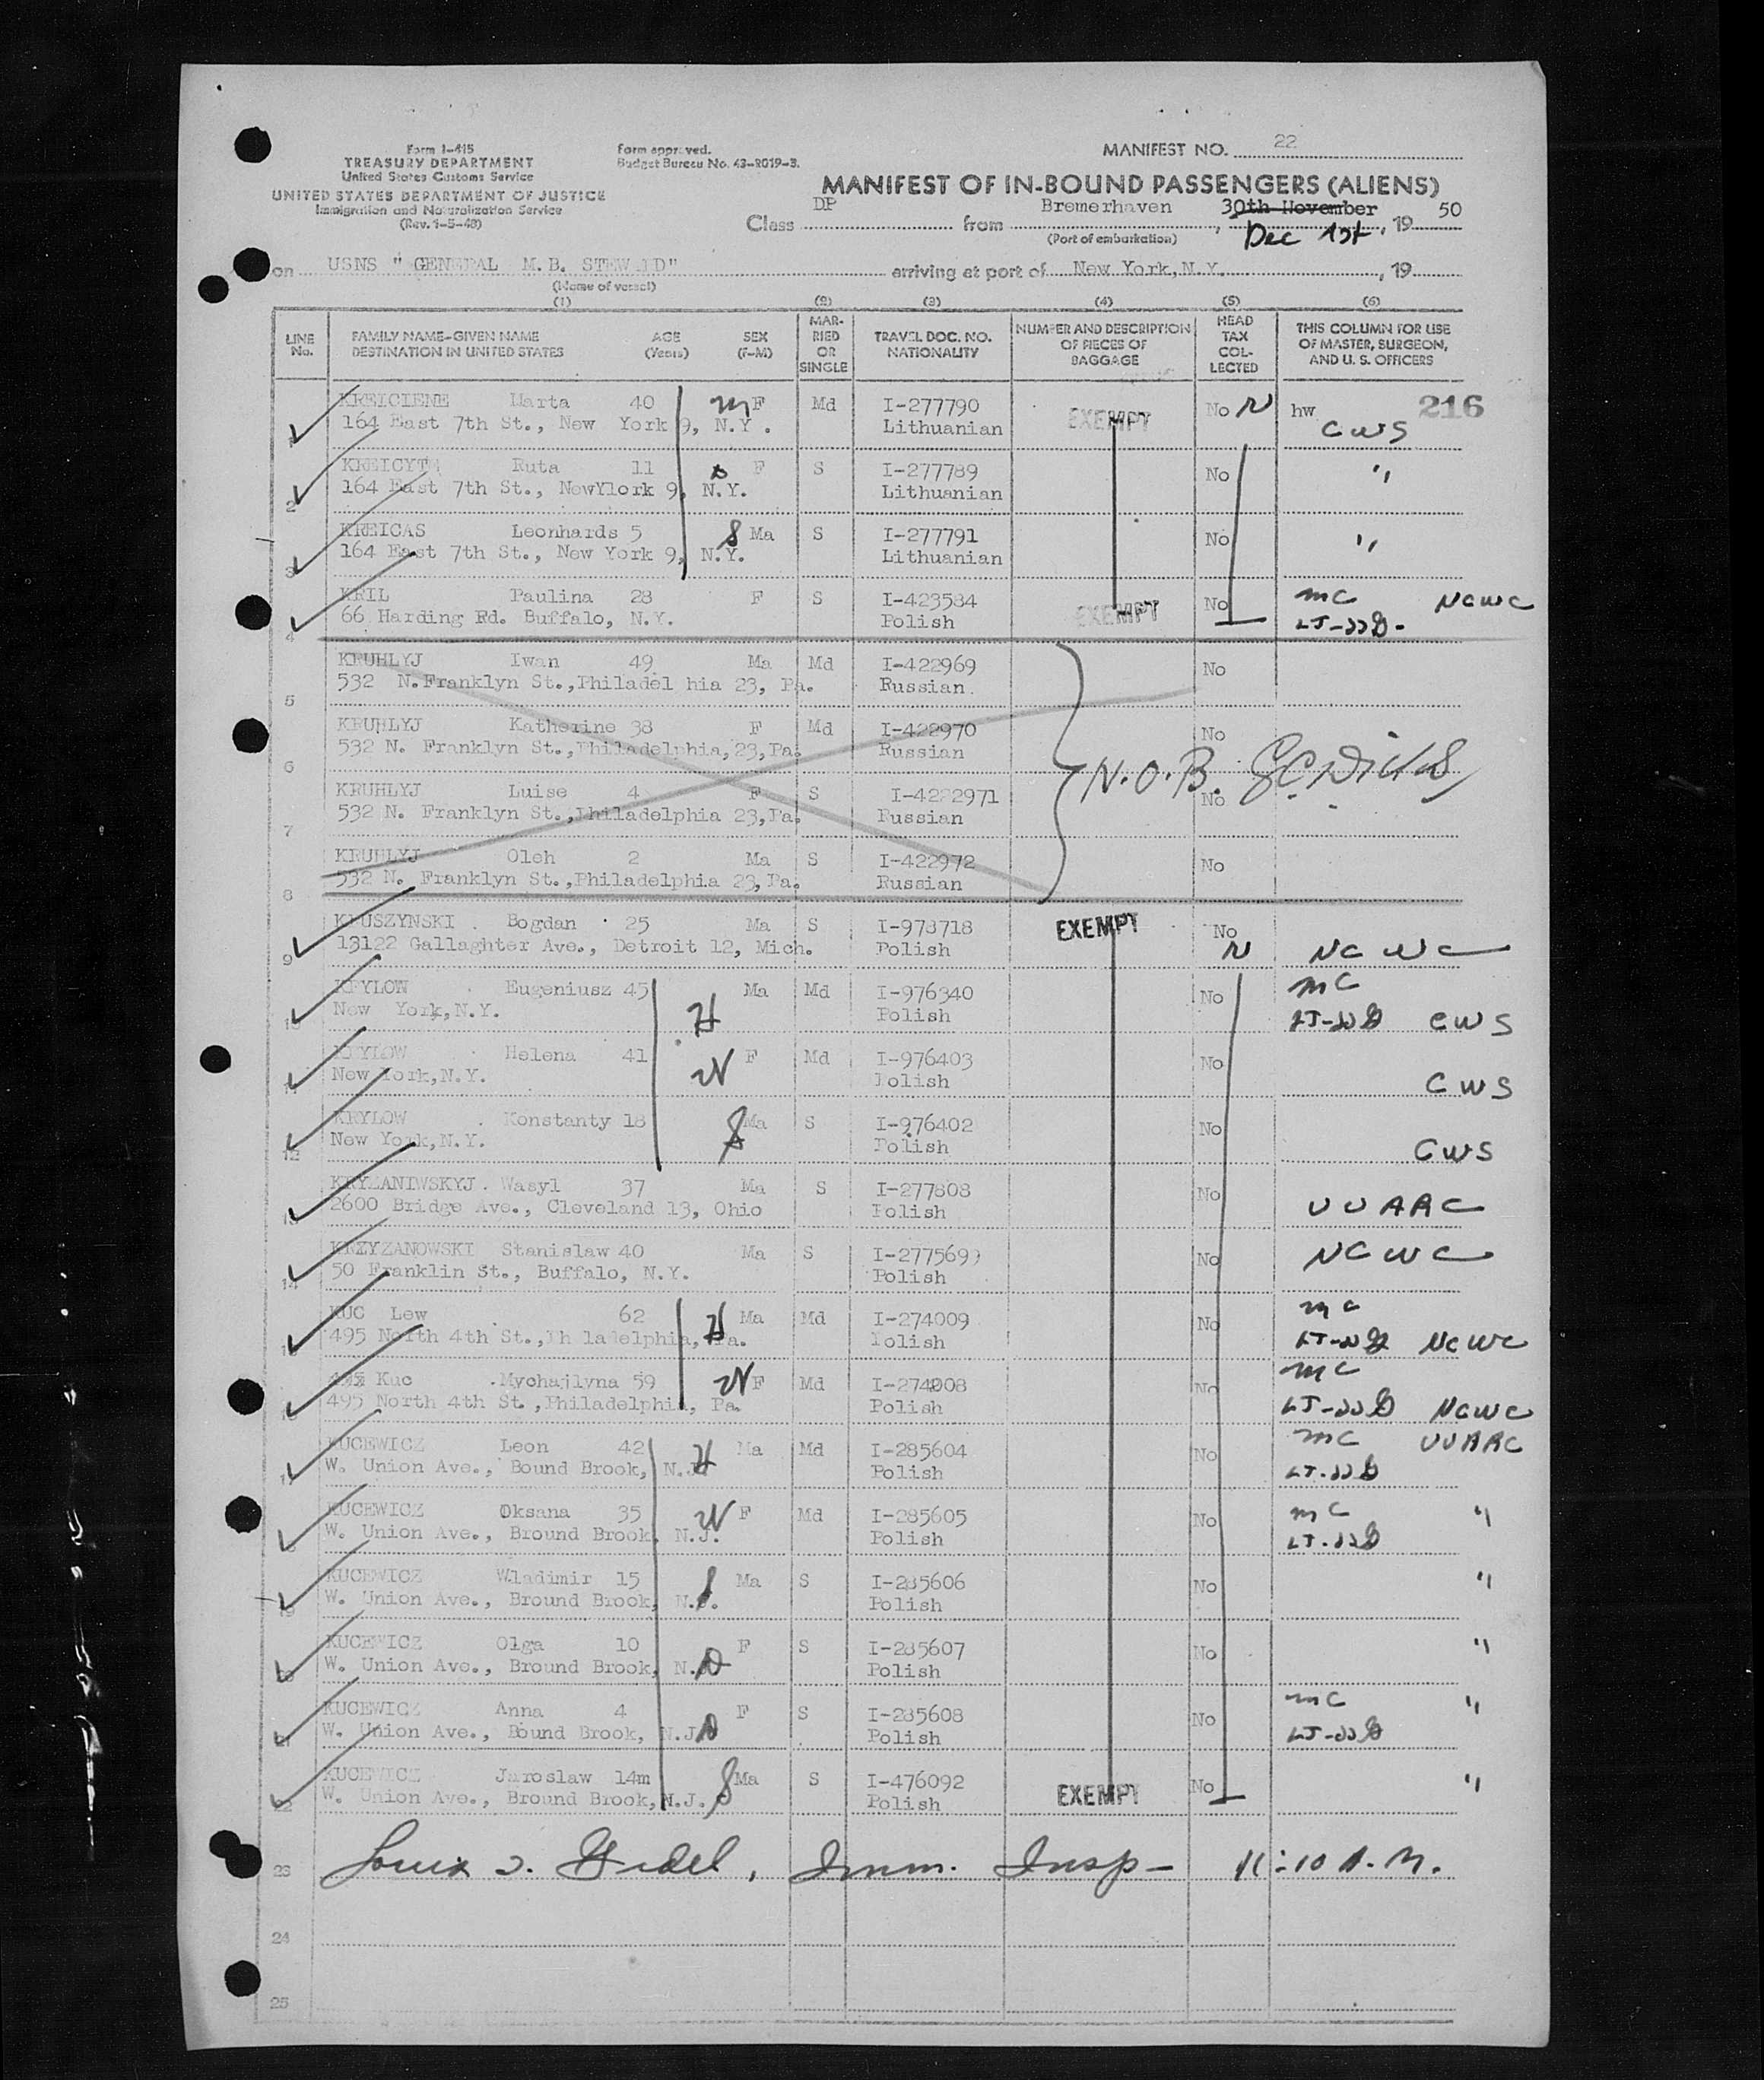 Form I-415
TREASURY DEPARTMENT
United States Customs Service
UNITED STATES DEPARTMENT OF JUSTICE
Immigration and Naturalization Service
(Rev. 1-5-48)
Form approved.
Budget Bureau No. 43-R019-3.
MANIFEST NO. 22
MANIFEST OF IN-BOUND PASSENGERS (ALIENS)
Class DP from Bremerhaven, 30th November, 19 50
(Port of embarkation) Dec 1st
on USNS "GENERAL M.B. STEW RD" arriving at port of New York, N.Y., 19
(Name of vessel)
(1) (2) (3) (4) (5) (6)
LINE No. FAMILY NAME-GIVEN NAME DESTINATION IN UNITED STATES AGE (Years) SEX (F-M) MARRIED OR SINGLE TRAVEL DOC. NO. NATIONALITY NUMBER AND DESCRIPTION OF PIECES OF BAGGAGE HEAD TAX COLLECTED THIS COLUMN FOR USE OF MASTER, SURGEON, AND U. S. OFFICERS
1 KREICIENE Marta 40 m F Md I-277790 EXEMPT No N hw 216
164 East 7th St., New York 9, N.Y. Lithuanian CWS
2 KREICYTE Ruta 11 F S I-277789 No "
164 East 7th St., NewYlork 9, N.Y. Lithuanian
3 KREICAS Leonhards 5 S Ma S I-277791 No "
164 East 7th St., New York 9, N.Y. Lithuanian
4 KRIL Paulina 28 F S I-423584 EXEMPT No mc NCWC
66 Harding Rd. Buffalo, N.Y. Polish
5 KRUHLYJ Iwan 49 Ma Md I-422969 No
532 N.Franklyn St.,Philadel hia 23, Pa. Russian
6 KRUHLYJ Katherine 38 F Md I-422970 No
532 N. Franklyn St.,Philadelphia,23,Pa. Russian
N.O.B.
7 KRUHLYJ Luise 4 F S I-4222971 No
532 N. Franklyn St.,Philadelphia 23,Pa. Russian
8 KRUHLYJ Oleh 2 Ma S I-422972 No
532 N. Franklyn St.,Philadelphia 23,Pa. Russian
9 KRUSZYNSKI Bogdan 25 Ma S I-978718 EXEMPT No
13122 Gallaghter Ave., Detroit 12, Mich. Polish N NCWC
10 KRYLOW Eugeniusz 45 H Ma Md I-976340 No mc
New York,N.Y. Polish CWS
11 KRYLOW Helena 41 W F Md I-976403 No
New York,N.Y. Polish CWS
12 KRYLOW Konstanty 18 S Ma S I-976402 No
New York,N.Y. Polish CWS
13 KRYZANIWSKYJ Wasyl 37 Ma S I-277808 No
2600 Bridge Ave., Cleveland 13, Ohio Polish UUARC
14 KRZYZANOWSKI Stanislaw 40 Ma S I-2775699 No NCWC
50 Franklin St., Buffalo, N.Y. Polish
15 KUC Lew 62 H Ma Md I-274009 No mc
495 North 4th St.,Ph ladelphia, Pa. Polish NCWC
16 Kuc Mychajlyna 59 W F Md I-274008 No mc
495 North 4th St.,Philadelphia, Pa. Polish NCWC
17 KUCEWICZ Leon 42 H Ma Md I-285604 No mc UUARC
W. Union Ave., Bound Brook, N.J. Polish
18 KUCEWICZ Oksana 35 W F Md I-285605 No mc "
W. Union Ave., Bround Brook, N.J. Polish
19 KUCEWICZ Wladimir 15 Ma S I-285606 No "
W. Union Ave., Bround Brook, N.J. Polish
20 KUCEWICZ Olga 10 F S I-285607 No "
W. Union Ave., Bround Brook, N.J. Polish
21 KUCEWICZ Anna 4 F S I-285608 No mc "
W. Union Ave., Bound Brook, N.J. Polish
22 KUCEWICZ Jaroslaw 14m S Ma S I-476092 EXEMPT No "
W. Union Ave., Bround Brook, N.J. Polish
23 Imm. Insp- 11:10 A.M.
24
25